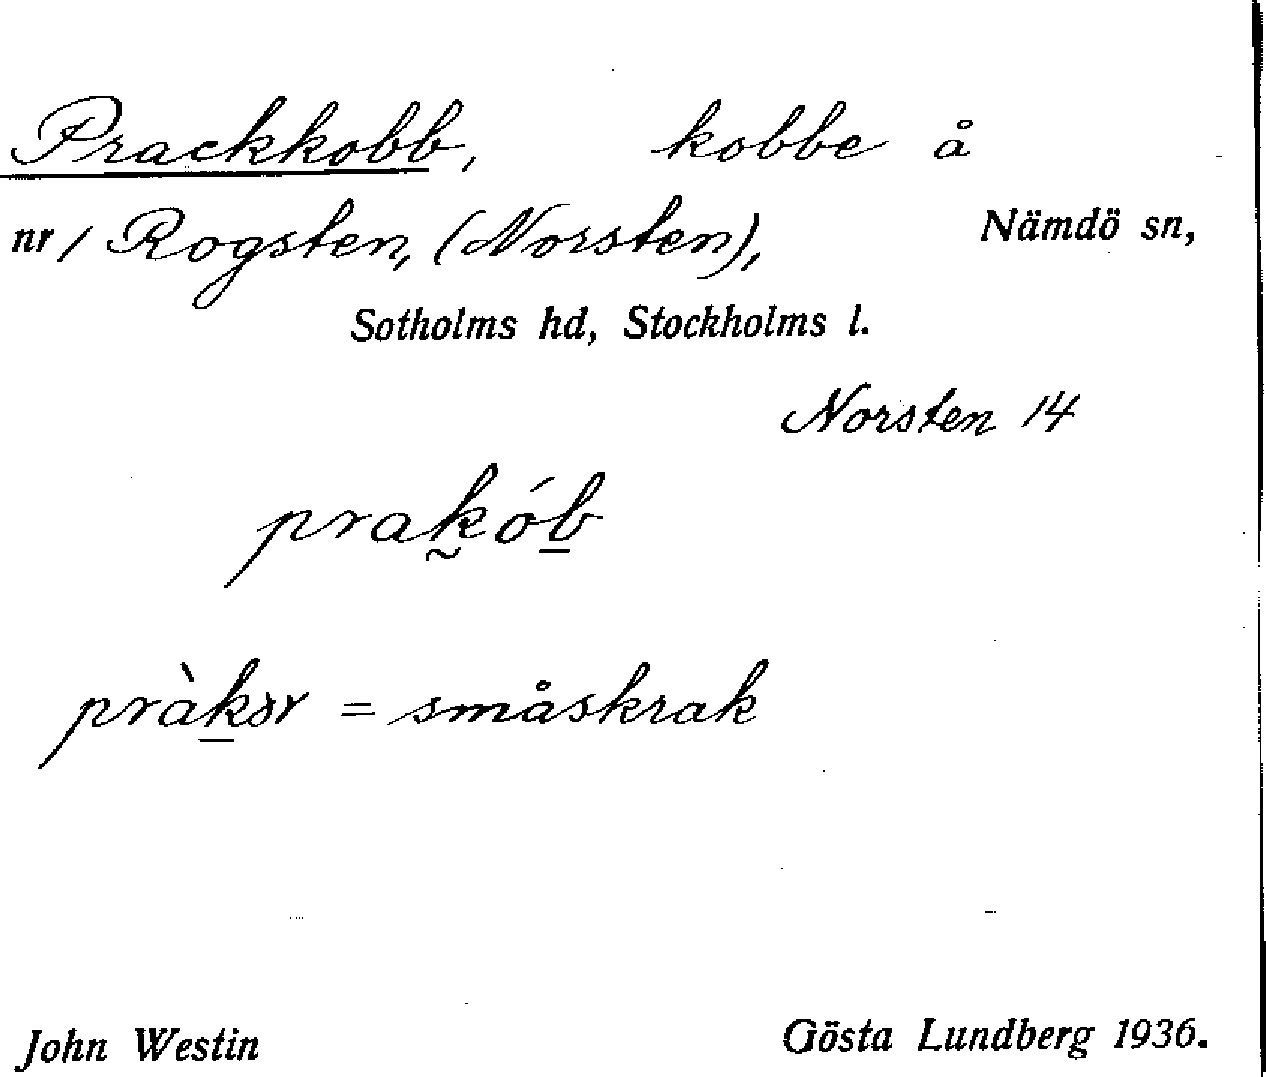 Prackkobb, kobbe å
nr 1 Rogsten, (Norsten), Nämdö sn,
Sotholms hd, Stockholms l.
Norsten 14
prak̰ób̲
pràk̲ər = småskrak
John Westin Gösta Lundberg 1936.